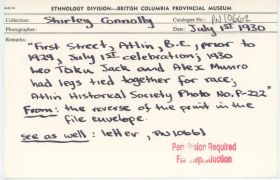 ETHNOLOGY DIVISION—BRITISH COLUMBIA PROVINCIAL MUSEUM
Collection: Shirley Connolly Catalogue No.: PN10662
Photographer: Date: July 1st 1930
"First Street, Atlin, B.C., prior to
1929, July 1st celebration; 1930
Leo Taku Jack and Alex Munro
had legs tied together for race;
Atlin Historical Society Photo No. P-222"
From: the reverse of the print in the
file envelope.
see as well: letter, PN10661
Permission Required
For Reproduction